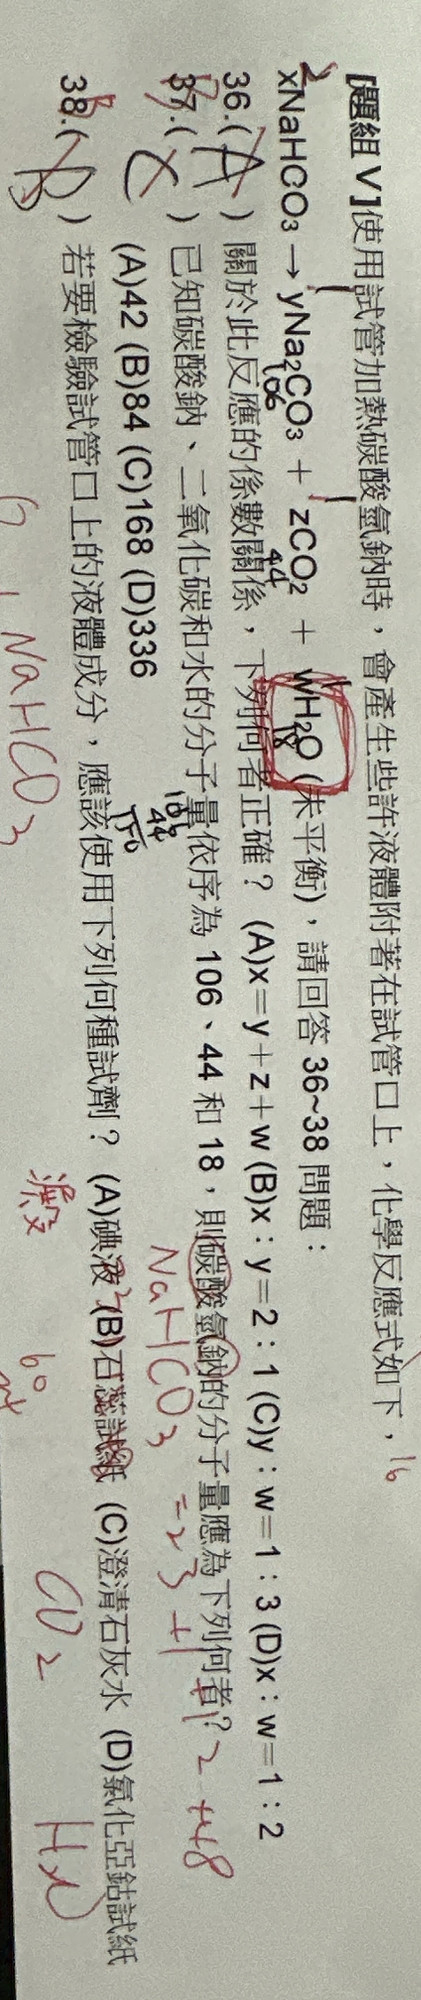 [題組 V]使用試管加熱碳酸氫鈉時，會產生些許液體附著在試管口上，化學反應式如下，
xNaHCO₃ → yNa₂CO₃ + zCO₂ + wH₂O (未平衡)，請回答 36~38 問題：
2 1 1 1
106 44 18
16
36.( A ) 關於此反應的係數關係，下列何者正確？ (A)x＝y＋z＋w (B)x：y＝2：1 (C)y：w＝1：3 (D)x：w＝1：2
37.( C ) 已知碳酸鈉、二氧化碳和水的分子量依序為 106、44 和 18，則碳酸氫鈉的分子量應為下列何者？
B
106
44
150
NaHCO₃ = 23 + 1 + 12 + 48
(A)42 (B)84 (C)168 (D)336
38.( B ) 若要檢驗試管口上的液體成分，應該使用下列何種試劑？ (A)碘液 (B)石蕊試紙 (C)澄清石灰水 (D)氯化亞鈷試紙
澱粉 CO₂ H₂O
NaHCO₃
60